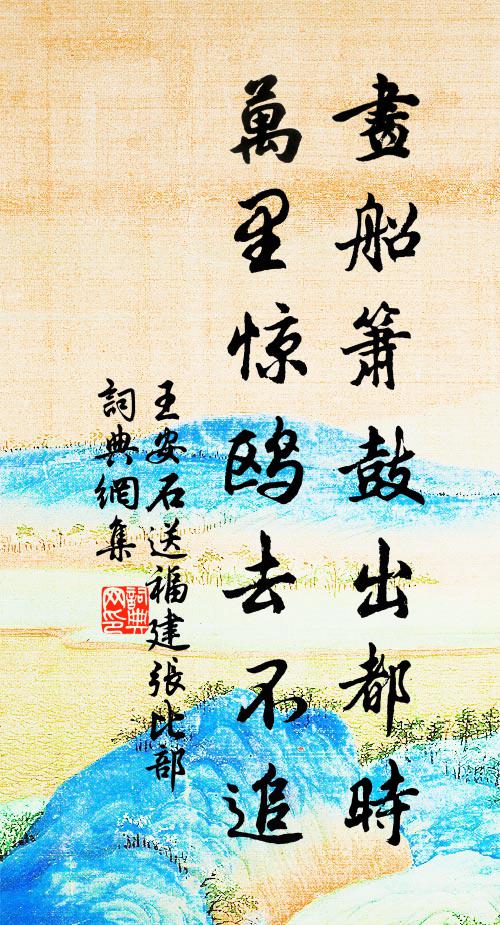 畫船簫鼓出都時
萬里惊鸥去不追
王安石送福建張比部
詞典網集
詞典
网印